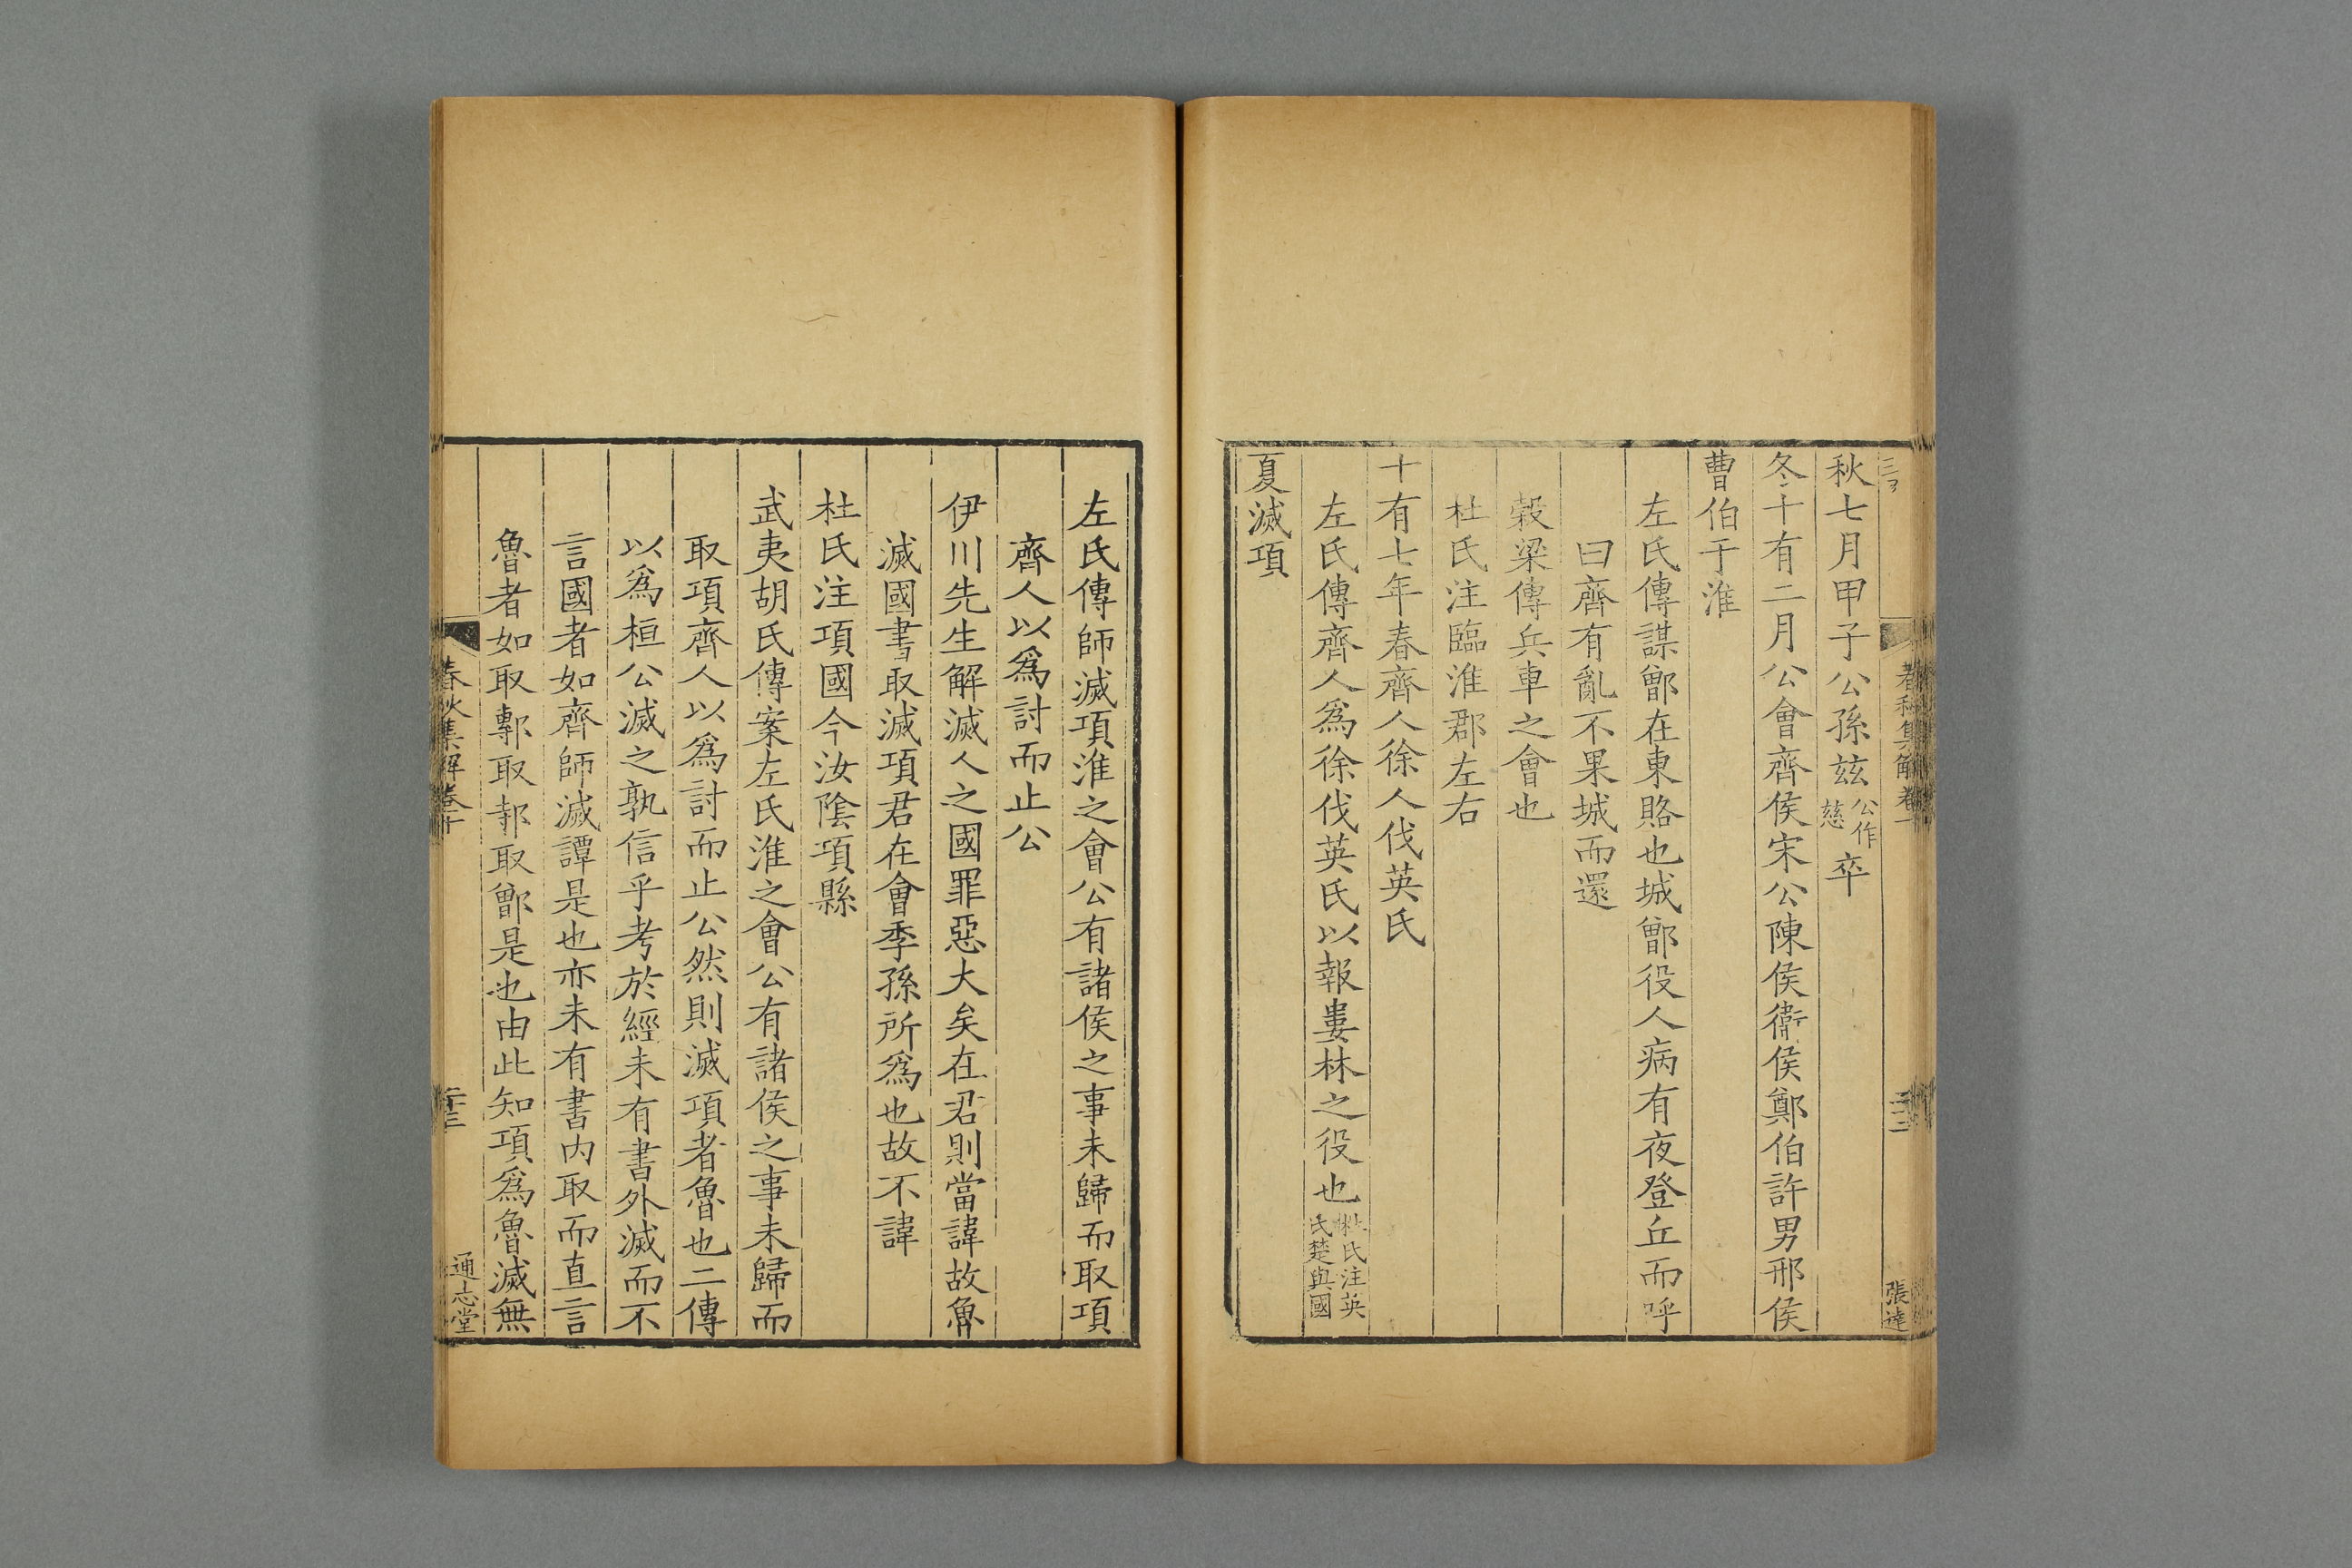 秋七月甲子公孫玆公作慈卒
冬十有二月公會齊侯宋公陳侯衞侯鄭伯許男邢侯
曹伯于淮
左氏傳謀鄫在東賂也城鄫役人病有夜登丘而呼
曰齊有亂不果城而還
榖梁傳兵車之會也
杜氏注臨淮郡左右
十有七年春齊人徐人伐英氏
左氏傳齊人爲徐伐英氏以報婁林之役也杜氏注英氏楚與國
夏滅項
左氏傳師滅項淮之會公有諸侯之事未歸而取項
齊人以爲討而止公
伊川先生解滅人之國罪惡大矣在君則當諱故魯
滅國書取滅項君在會季孫所爲也故不諱
杜氏注項國今汝隂項縣
武夷胡氏傳案左氏淮之會公有諸侯之事未歸而
取項齊人以爲討而止公然則滅項者魯也二傳
以爲桓公滅之孰信乎考於經未有書外滅而不
言國者如齊師滅譚是也亦未有書内取而直言
魯者如取鄟取邿取鄫是也由此知項爲魯滅無
春秋集解卷十
二十三
通志堂
張達